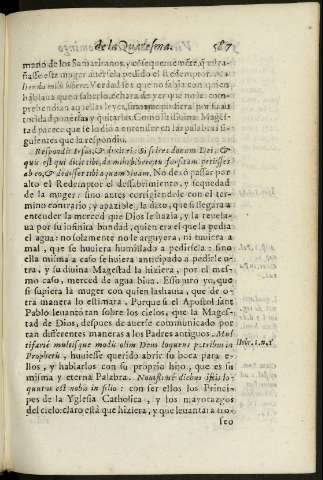 de la Quaresma. 587
mano de los Samaritanos, y cõsequentemẽte, q̃ estra-
ñasse esta muger averlela pedido el Redemptor. Mu-
lier da mihi bibere. Verdad es que no sabia con quien
hablaua que a saberlo, echara de ver que no le com-
prehendian aquellas leyes,
cida ponerlas y quitarlas. Como lo
tad parece que se lo dio a entender en las palabras si-
guientes que la respondiò.
Respondit Iesus, & dixit ei: Si scires donum Dei, &
quis est qui dicit tibi, da mihi bibere, tu forsitam petisses
ab eo, & dedisset tibi aquam viuam. No dexò passar por
alto el Redemptor el dessabrimiento, y sequedad
de la muger: sino antes corrigiendole con el ter-
mino contrario, y apazible, la dixo, que si llegara a
entender la merced que Dios le hazia, y la revela-
ua por su infinita bondad, quien era el que la pedia
el agua: no solamente no le arguyera, ni tuuiera a
mal, que se huuiera humillado a pedirsela: sino
ella misma a caso se huuiera anticipado a pedirle o-
tra, y su diuina Magestad la hiziera, por el mes-
mo caso, merced de agua biua. Esso juro yo, que
si supiera la muger con quien hablaua, que de o-
tra manera lo estimara. Porque si el Apostol sant
Pablo leuantò tan sobre los cielos, que la Mages-
tad de Dios, despues de auerse comunicado por
tan differentes maneras a los Padres antiguos. Mul-
tifariè multisque modis olim Deus loquens patribus in
Prophetis, huuiesse querido abrir su boca para e-
llos, y hablarlos con su proprio hijo, que es su
misma y eterna Palabra. Nouissimè diebus istis lo-
quutus est nobis in filio: con ser ellos los Princi-
pes de la Yglesia Catholica, y los mayorazgos
del cielo: claro està que hiziera, y que leuantara tro-
feo
Hebr. 1.